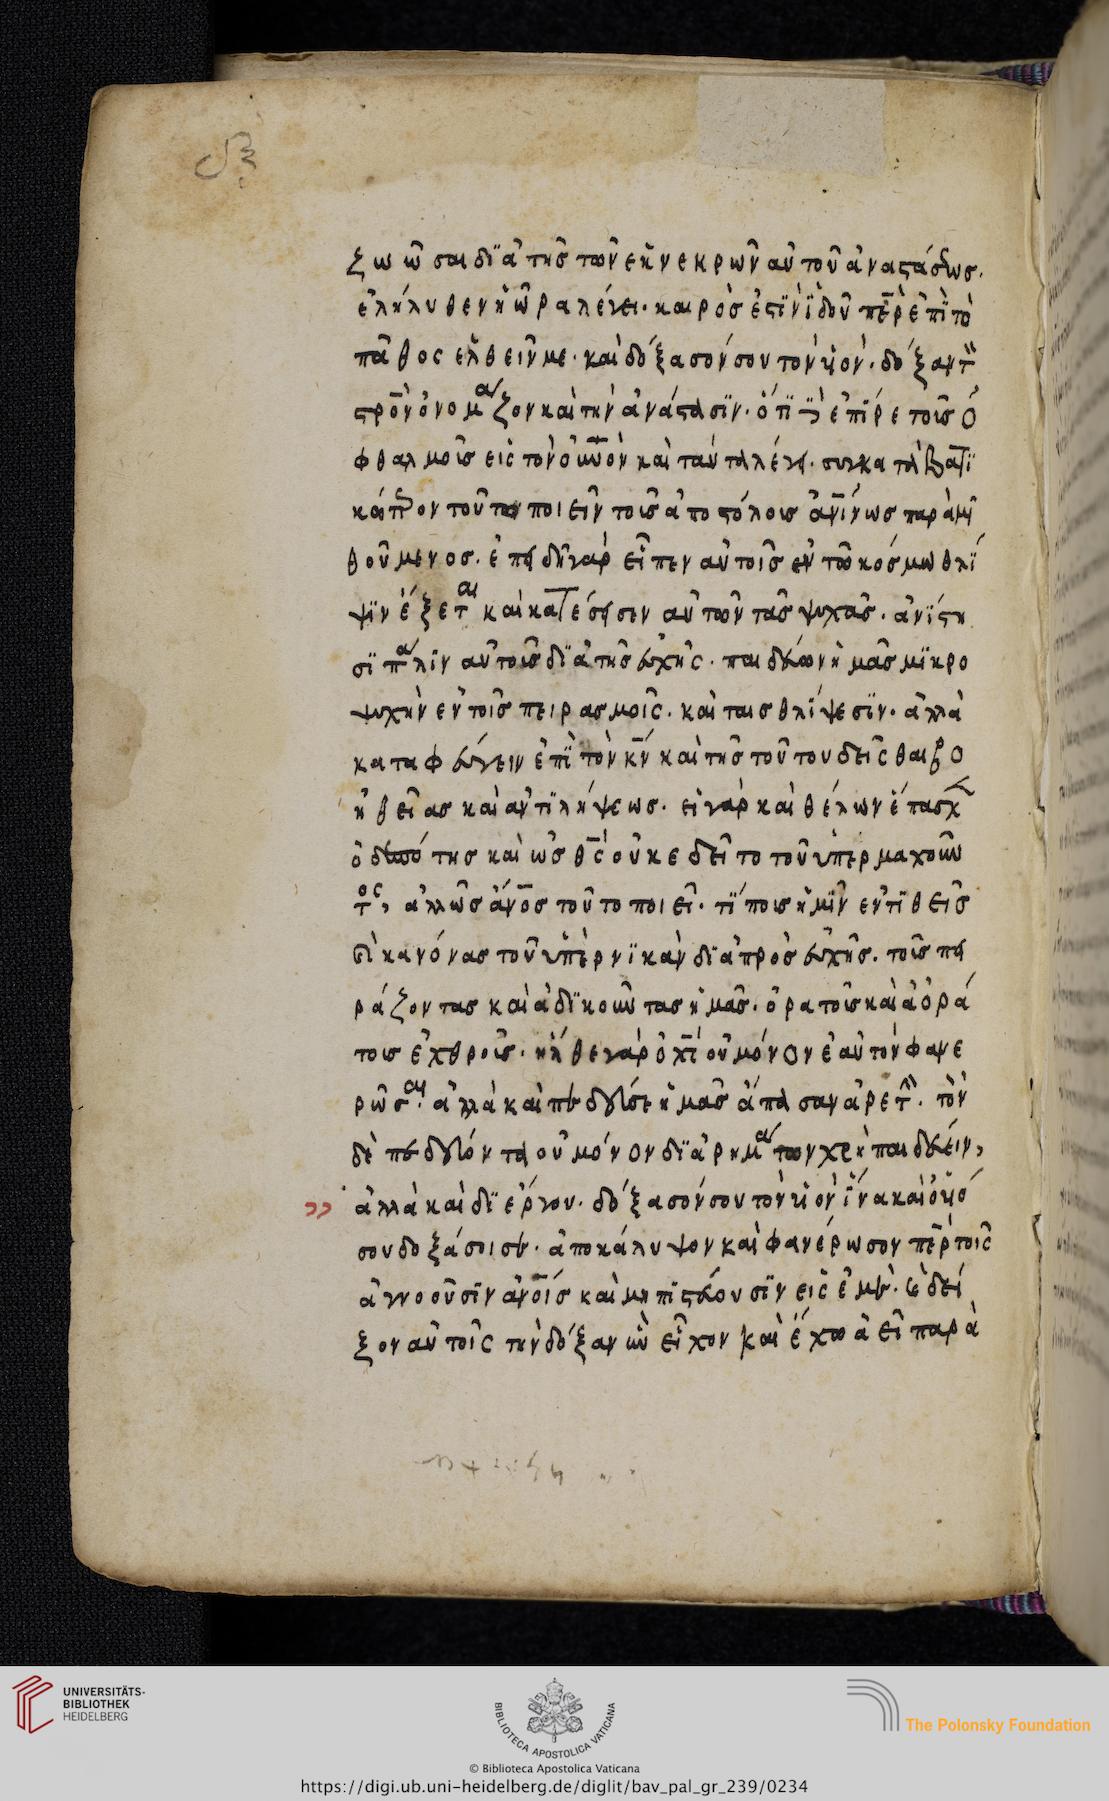 ζωῶσαι διὰ τῆς τῶν ἐκ νεκρῶν αὐτοῦ ἀναστάσεως.
ἐλήλυθεν ἡ ὥρα λέγει. καιρὸς ἐστὶν ἰδοῦ πρ̅ὲ ἐπὶ τὸ
πάθος ἐλθεῖν με. καὶ δόξασόν σου τὸν υἱόν. δόξαν τ
στρον ὀνομάζον καὶ τὴν ἀνάστασιν. ἐπῆρε τοὺς ὀ
φθαλμοὺς εἰς τὸν οὐ̅νον καὶ ταῦτα λέγει. συγκαταβατι
κώτερον τοῦτο ποιεῖν τοῖς ἀποστόλοις ἀν̅ίνως παραμυ
θούμενος. ἐπειδὴ γὰρ εἶπεν αὐτοῖς ἐν τῶ κόσμω θλί
ψιν ἕξεται καὶ κατέσεισεν αὐτῶν τὰς ψυχὰς. ἀνίστη
σι πάλιν αὐτοὺς διὰ τῆς εὐχῆς. παιδεύων ἡμᾶς μὴ μικρο
ψυχὴν ἐν τοῖς πειρασμοῖς. καὶ ταις θλίψεσιν. ἀλλὰ
καταφεύγειν ἐπὶ τὸν κν̅ καὶ τῆς τούτου δεῖσθαι βο
ηθείας καὶ ἀντιλήψεως. εἰ γὰρ καὶ θέλων ἔπασχ
ὁ δεσπότης καὶ ὡς θς̅ οὐκ ἐδεῖτο τοῦ ὑπερμαχοῦν
τος, ἀλλ' ὡς ἀνο̅ς τοῦτο ποιεῖ. τύπους ἡμῖν ἐντιθεὶς
καὶ κανόνας τοῦ ὑπὲρνικὰν διὰ προσευχῆς. τοὺς πει
ράζοντας καὶ ἀδικοῦντας ἡμᾶς. ὁρατοῖς καὶ ἀορά
τοις ἐχθροῖς. ἦλθε γὰρ ὁ χς̅ οὐ μόνον ἑαυτὸν φανε
ρῶσαι. ἀλλὰ καὶ παιδεῦσαι ἡμᾶς ἅπασαν ἀρετήν. τὸν
δὲ παιδεύοντα οὐ μόνον διὰ ρημάτων χρὴ παιδεύειν,
ἀλλὰ καὶ δι' ἔργου. δόξασόν σου τὸν υἱὸν ἵνα καὶ ὁ υἱό
σου δοξάσει σε. ἀποκάλυψον καὶ φανέρωσον πε̅ρ τοῖς
ἀγνοοῦσιν ἀνοις̅ καὶ μὴ πιστεύουσιν εἰς ἐμὲ. καὶ δεί
ξον αὐτοῖς τὴν δόξαν ἣν εἶχον καὶ ἔχω ἀεὶ παρὰ
UNIVERSITÄTS-
BIBLIOTHEK
HEIDELBERG
BIBLIOTECA APOSTOLICA VATICANA
The Polonsky Foundation
© Biblioteca Apostolica Vaticana
https://digi.ub.uni-heidelberg.de/diglit/bav_pal_gr_239/0234